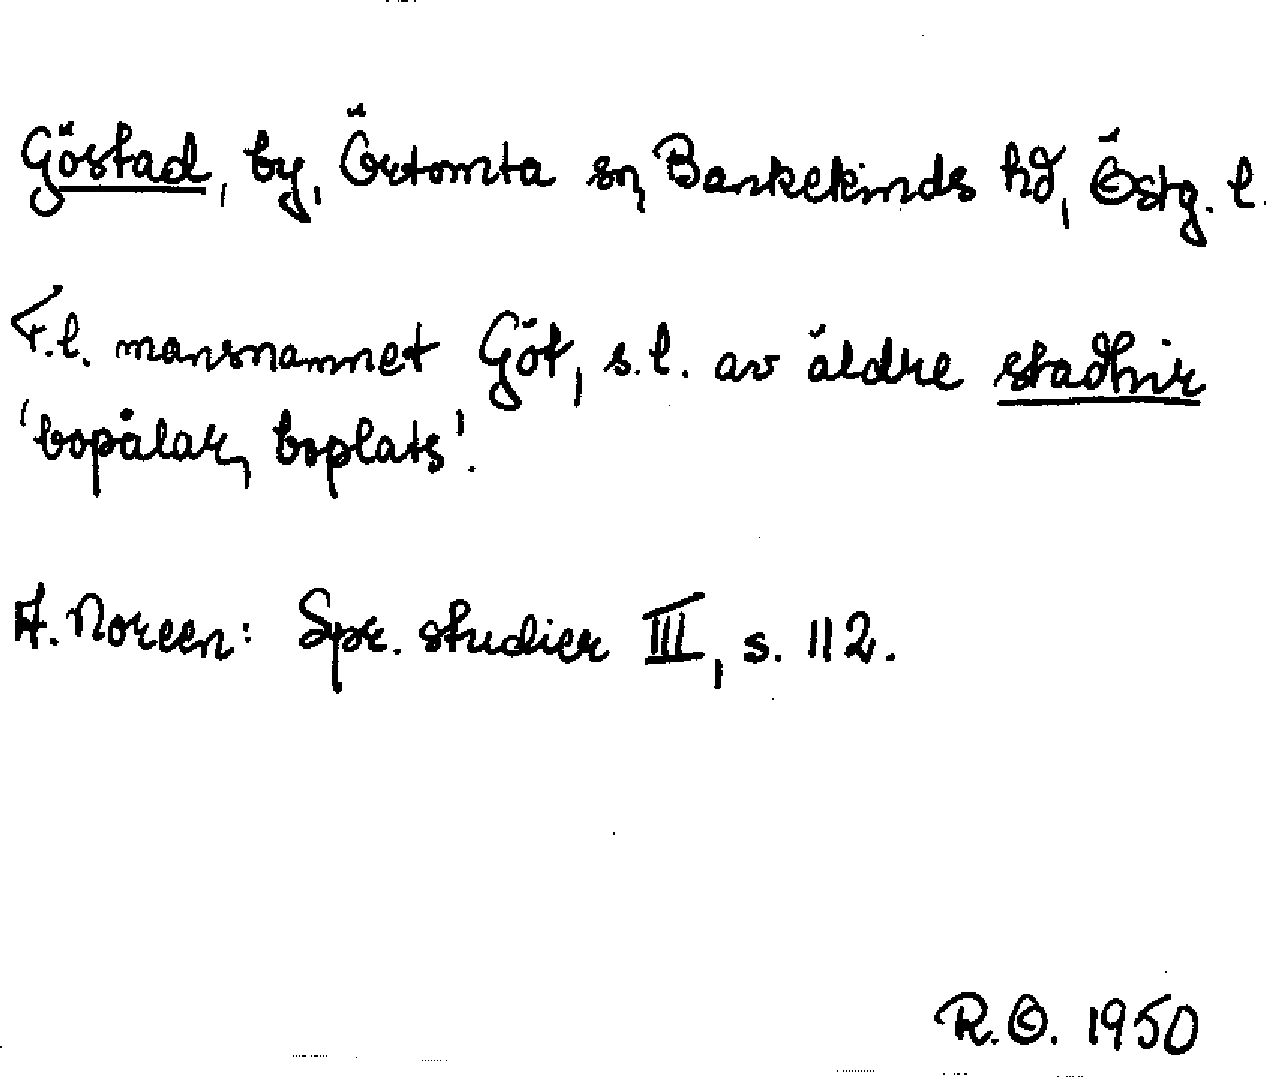 Göstad, by, Örtomta sn, Bankekinds hd, Östg. l.
F.l. mansnamnet Göt, s.l. av äldre stadhir
'bopålar, boplats'.
A. Noreen: Spr. studier III, s. 112.
R.O. 1950